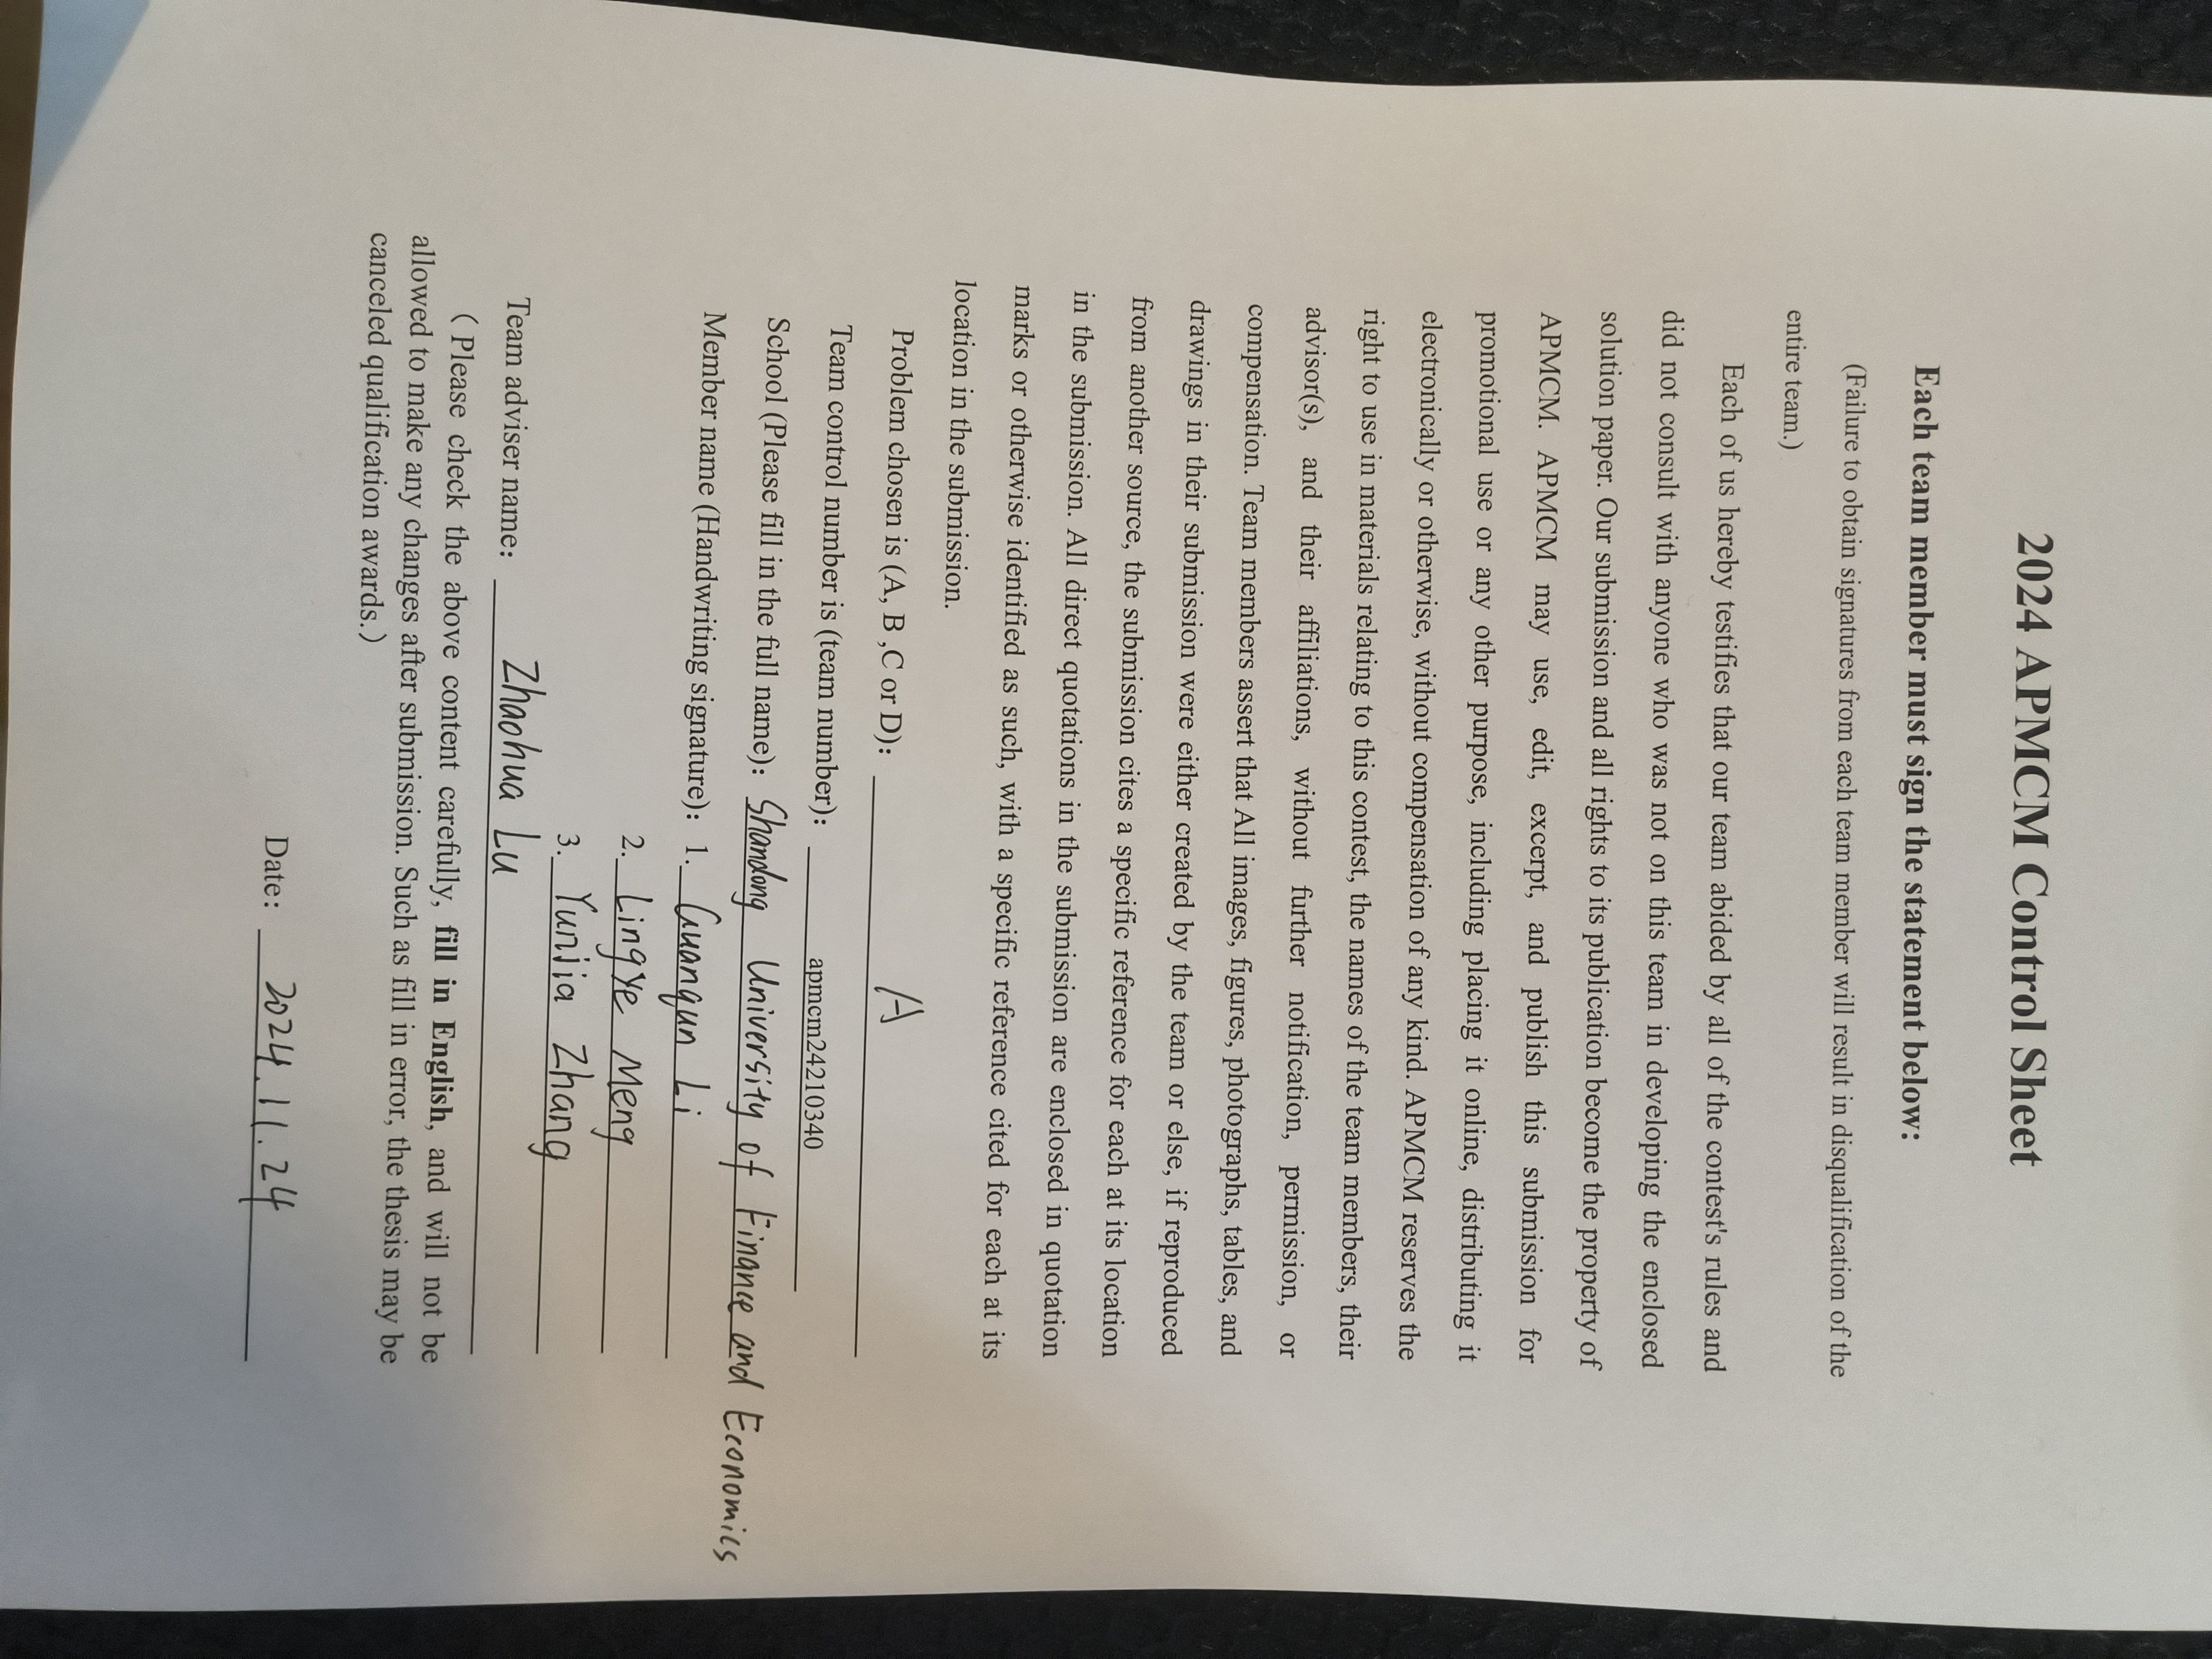 2024 APMCM Control Sheet
Each team member must sign the statement below:
(Failure to obtain signatures from each team member will result in disqualification of the
entire team.)
Each of us hereby testifies that our team abided by all of the contest's rules and
did not consult with anyone who was not on this team in developing the enclosed
solution paper. Our submission and all rights to its publication become the property of
APMCM. APMCM may use, edit, excerpt, and publish this submission for
promotional use or any other purpose, including placing it online, distributing it
electronically or otherwise, without compensation of any kind. APMCM reserves the
right to use in materials relating to this contest, the names of the team members, their
advisor(s), and their affiliations, without further notification, permission, or
compensation. Team members assert that All images, figures, photographs, tables, and
drawings in their submission were either created by the team or else, if reproduced
from another source, the submission cites a specific reference for each at its location
in the submission. All direct quotations in the submission are enclosed in quotation
marks or otherwise identified as such, with a specific reference cited for each at its
location in the submission.
Problem chosen is (A, B ,C or D): A
Team control number is (team number): apmcm24210340
School (Please fill in the full name): Shandong University of Finance and Economics
Member name (Handwriting signature): 1. Guanqun Li
2. Lingye Meng
3. Yunjia Zhang
Team adviser name: Zhaohua Lu
( Please check the above content carefully, fill in English, and will not be
allowed to make any changes after submission. Such as fill in error, the thesis may be
canceled qualification awards.)
Date: 2024.11.24